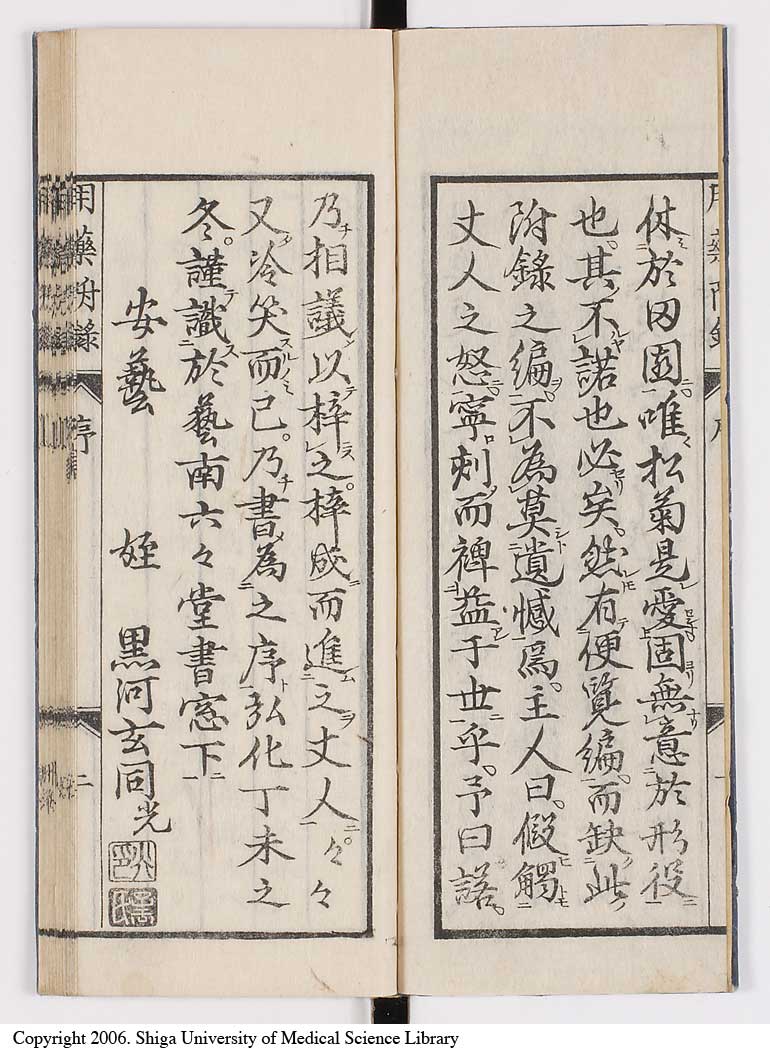 休於田園唯松菊是愛固無意於形役
也其不諾也必矣然有便覽編而缺此
附錄之編不為莫遺憾焉主人曰假觸
丈人之怒寧刻而裨益于世乎予曰諾
乃相議以梓之梓成而進之丈人々々
又冷笑而已乃書為之序弘化丁未之
冬謹識於藝南六々堂書窓下
安藝 姪 黒河玄同光
用藥附錄 序 二
Copyright 2006. Shiga University of Medical Science Library